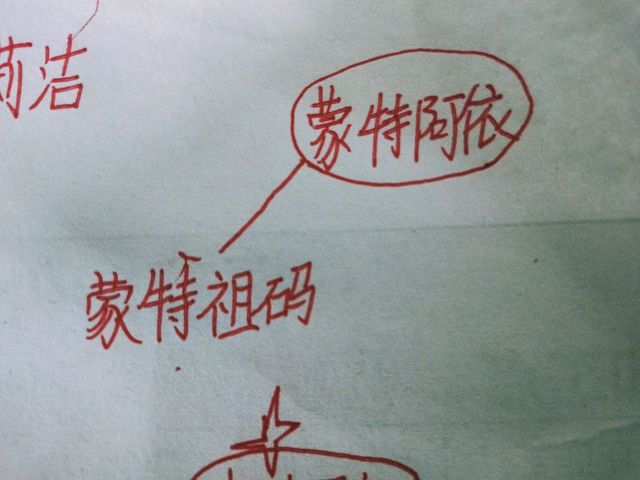 简洁
蒙特阿依
蒙特祖码